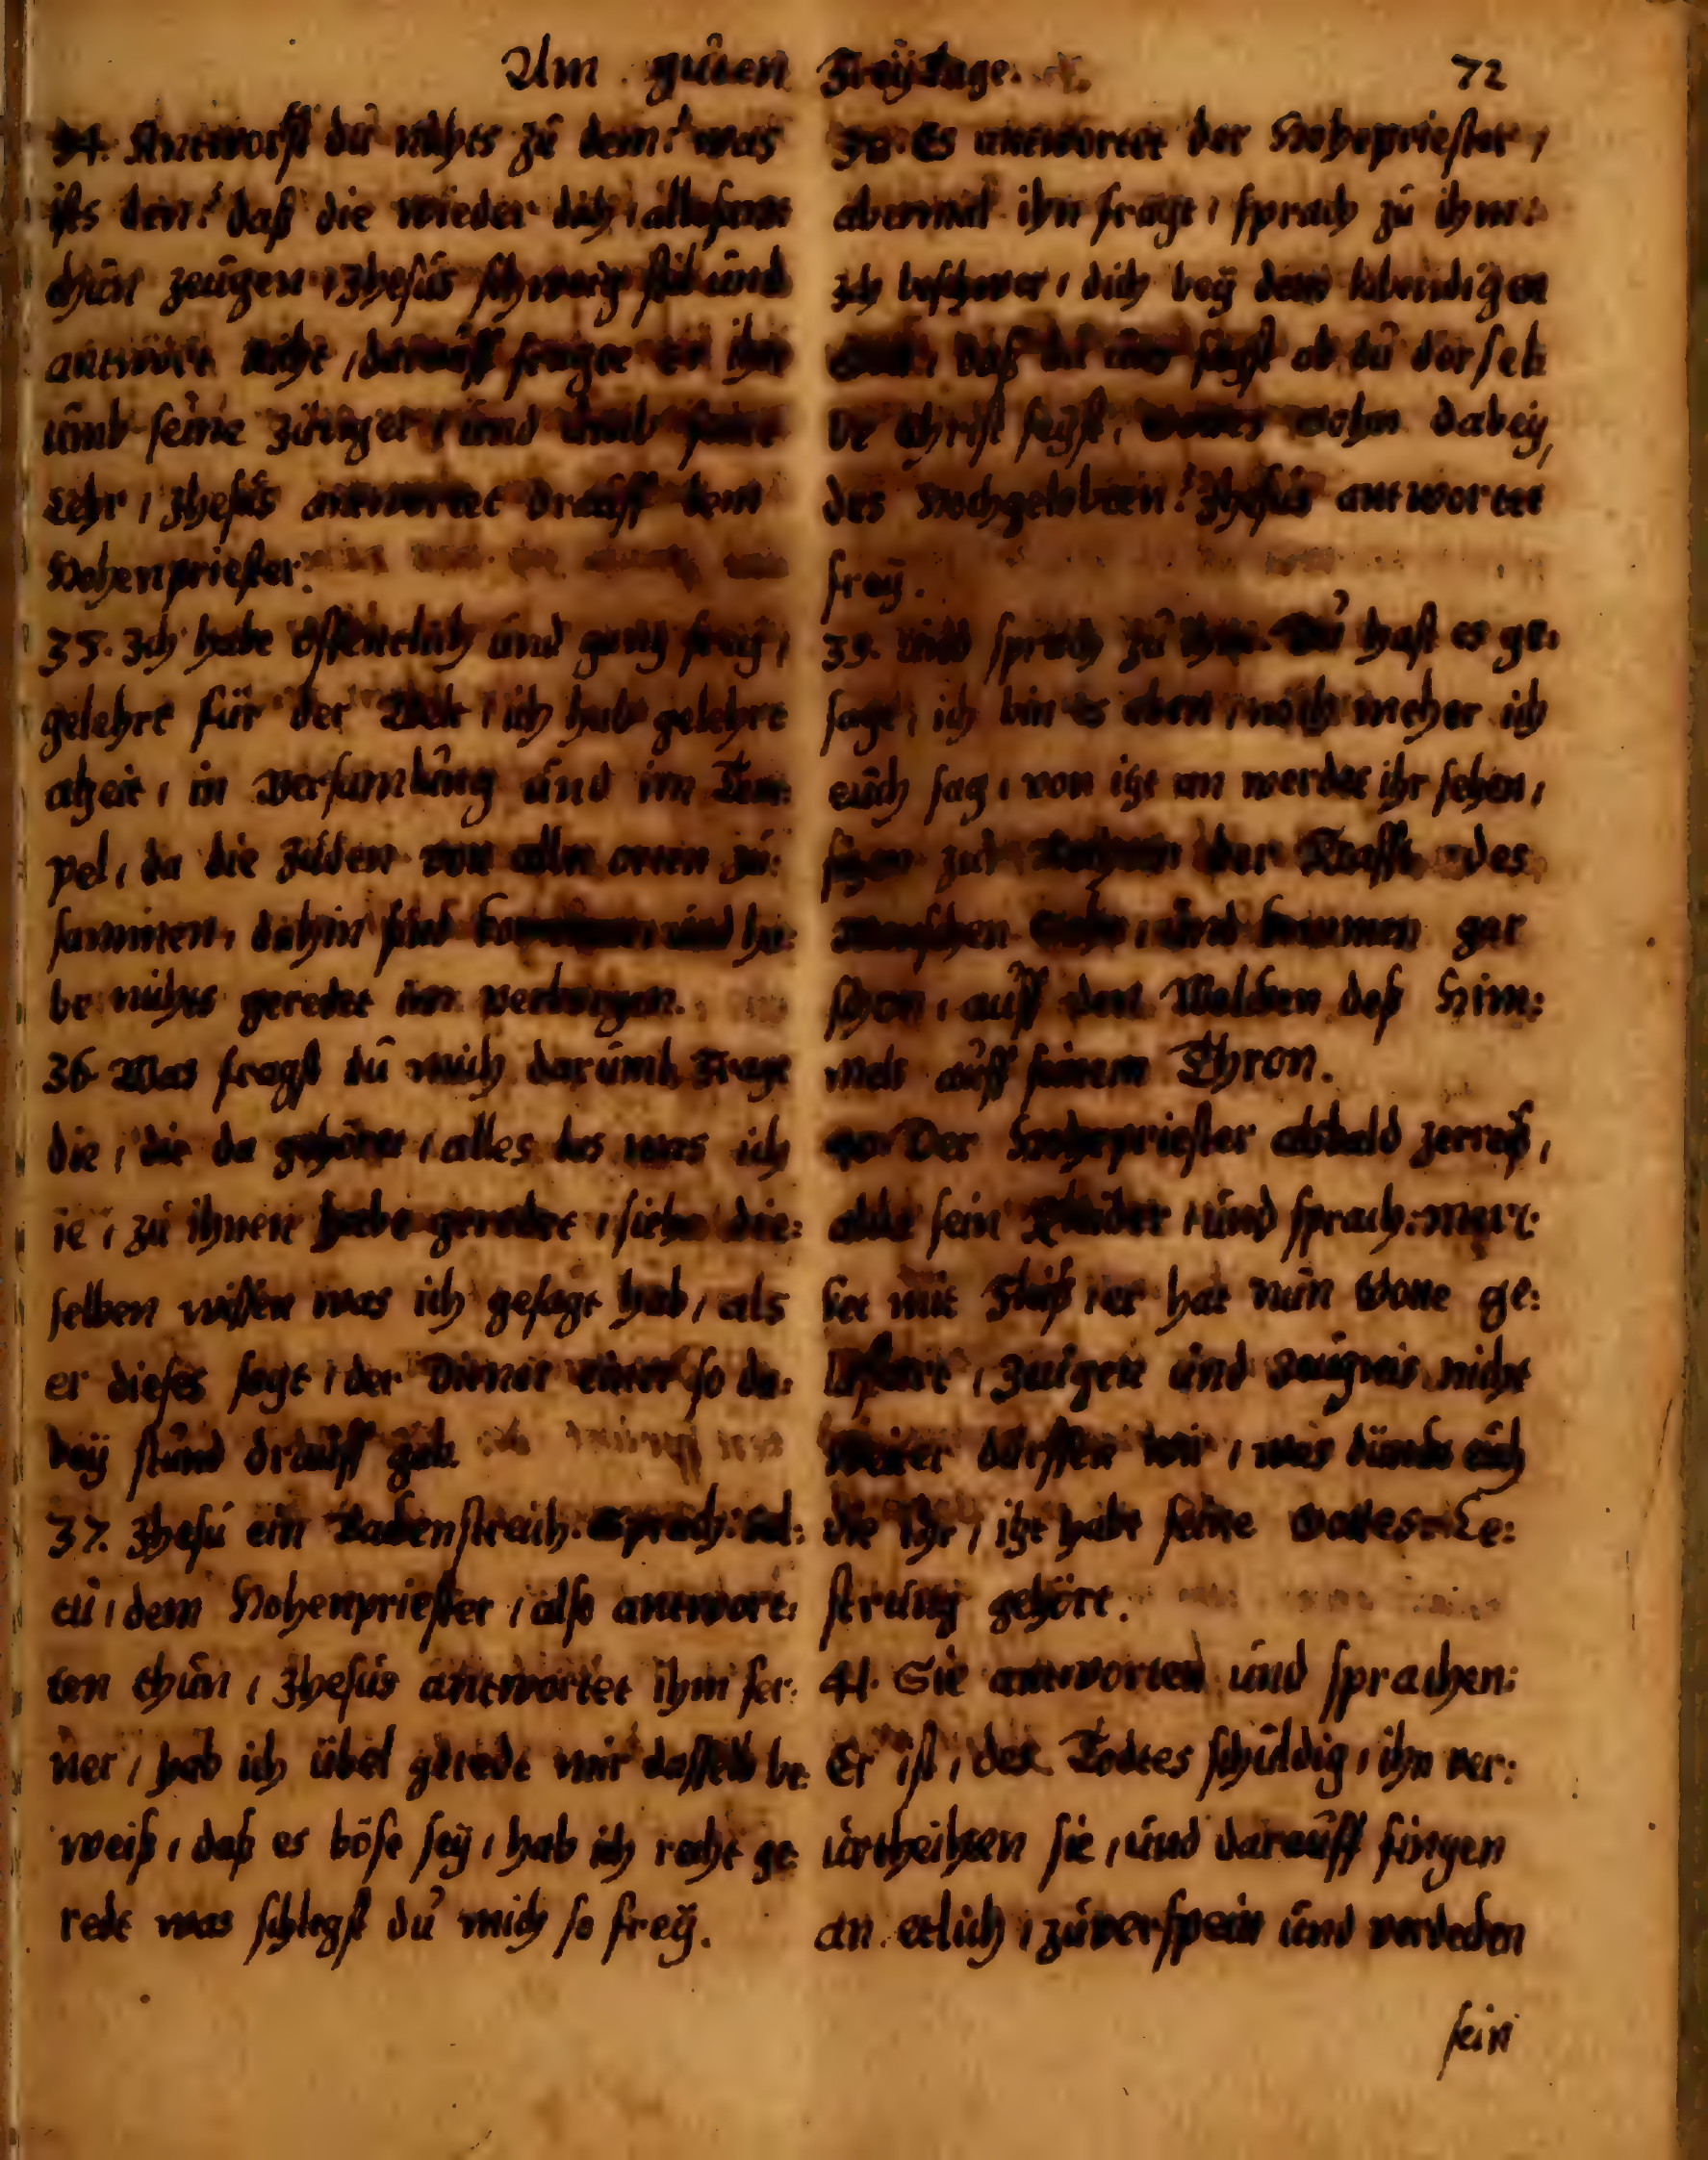 Am guten Freytage. 72
34. Antworst du nichts zu dem? was
ists den? daß die wieder dich / allesamt
thun zeugen / Jhesus schweig stil und
antwort nicht / darauff fraget er ihn
umb seine Jünger / und umb seine
Lehr / Jhesus antwortet drauff dem
Hohenpriester.
35. Jch habe offentlich und gantz frey /
gelehrt für der Welt / ich hab gelehrt
alzeit / in Versamlung und im Tem:
pel / da die Juden von allen orten zu:
sammen / dahin sind kommen und ha:
be nichts geredet im verborgen.
36. Was fragst du mich darumb, Frage
die / die da gehöret / alles das was ich
ie / zu ihnen habe geredet / siehe die:
selben wissen was ich gesagt hab / als
er dieses sagt / der Diener einer so da:
bey stund drauff gab.
37. Jhesu ein Backenstreich. Sprach: Sol:
tu / dem Hohenpriester / also antwort:
ten thun / Jhesus antwortet ihm fer:
ner / hab ich übel geredt mir dasselb be:
weiß / daß es böse sey / hab ich recht ge:
redt was schlegst du mich so frey.
38. Es antwortet der Hohepriester /
abermal ihn fragt / sprach zu ihm:
Jch beschwer / dich bey dem lebendigen
Gott / daß du uns sagst ob du dersel:
be Christ seyst, Gottes sohn dabey,
des Hochgelobten? Jhesus antwortet
frey.
39. und sprach zu ihm. Du hast es ge:
sagt / ich bin es eben / noch meher ich
euch sag / von itzt an werdet ihr sehen /
sitzen zur Rechten der Krafft des
menschen Sohn / und kommen gar
schon / auff den Wolcken deß Him:
mels auff seinem Thron.
40. Der Hohepriester alsbald zerreß /
alda sein Kleider / und sprach: merc:
ket mit Fleiß / er hat nun Gotte ge:
lestert / Zeugen und Zeugnis nicht
weiter dörffen wir / was dünckt euch
die Ihr / itzt habt seine Gottes-Le:
strung gehört.
41. Sie antworten und sprachen:
Er ist / des Todtes schuldig / ihn ver:
urtheilten sie / und darauff fingen
an etlich / zuverspein und verdecken
sein